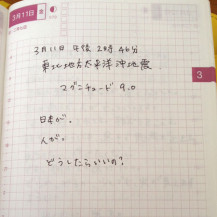 3月11日
3月11日 午後 2時46分
東北地方太平洋沖地震
マグニチュード 9.0
日本が。
人が。
どうしたらいいの?
3